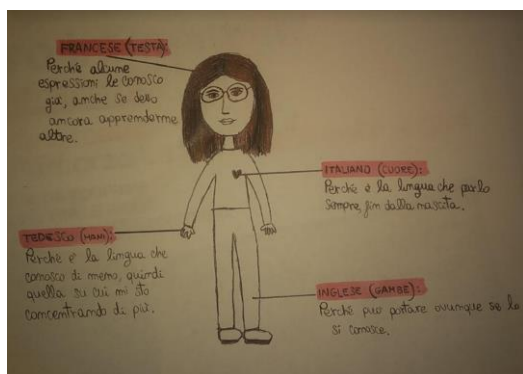 FRANCESE (TESTA):
Perché alcune
espressioni le conosco
già, anche se devo
ancora apprenderne
altre.
ITALIANO (CUORE):
Perché è la lingua che parlo
sempre, fin dalla nascita.
TEDESCO (MANI):
Perché è la lingua che
conosco di meno, quindi
quella su cui mi sto
concentrando di più.
INGLESE (GAMBE):
Perché può portare ovunque se la
si conosce.